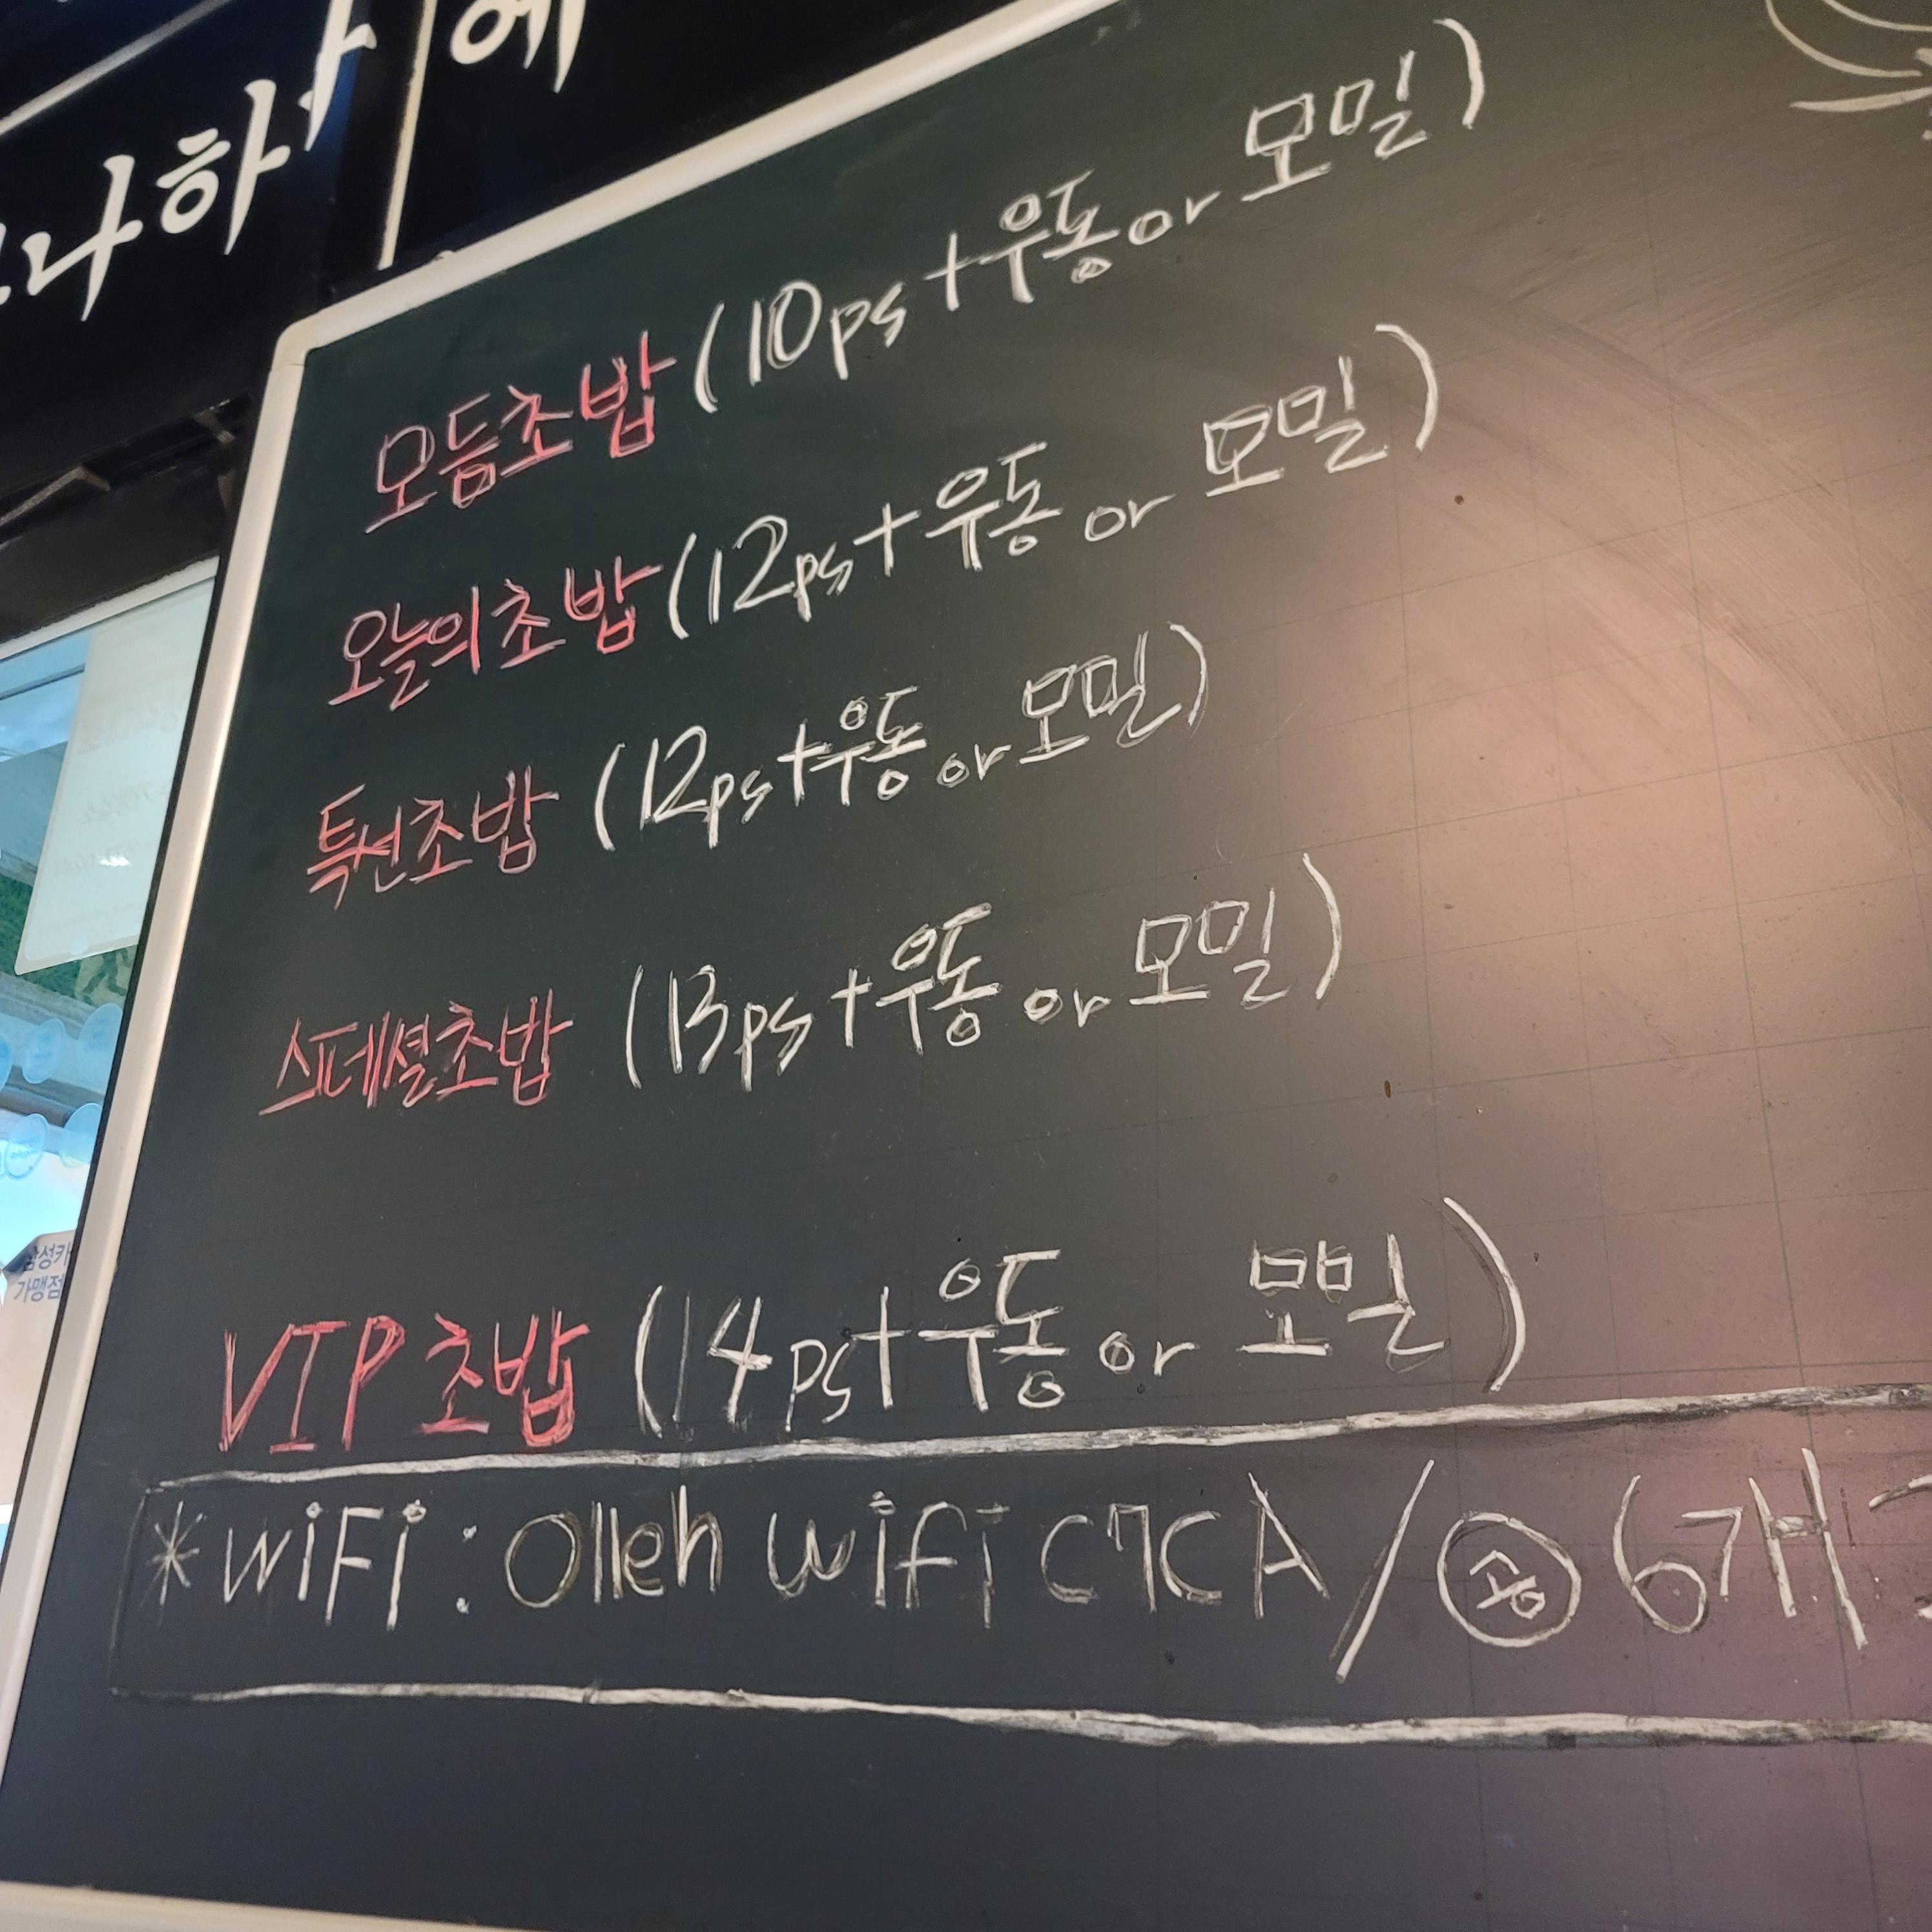 에
나하
모듬초밥 (10ps+우동 or 모밀)
오늘의초밥 (12ps+우동 or 모밀)
특선초밥 (12ps+우동 or 모밀)
스페셜초밥 (13ps+우동 or 모밀)
VIP 초밥 (14ps+우동 or 모밀)
*WiFi : Olleh WiFi C7CA / 공 6개
삼성카
가맹점